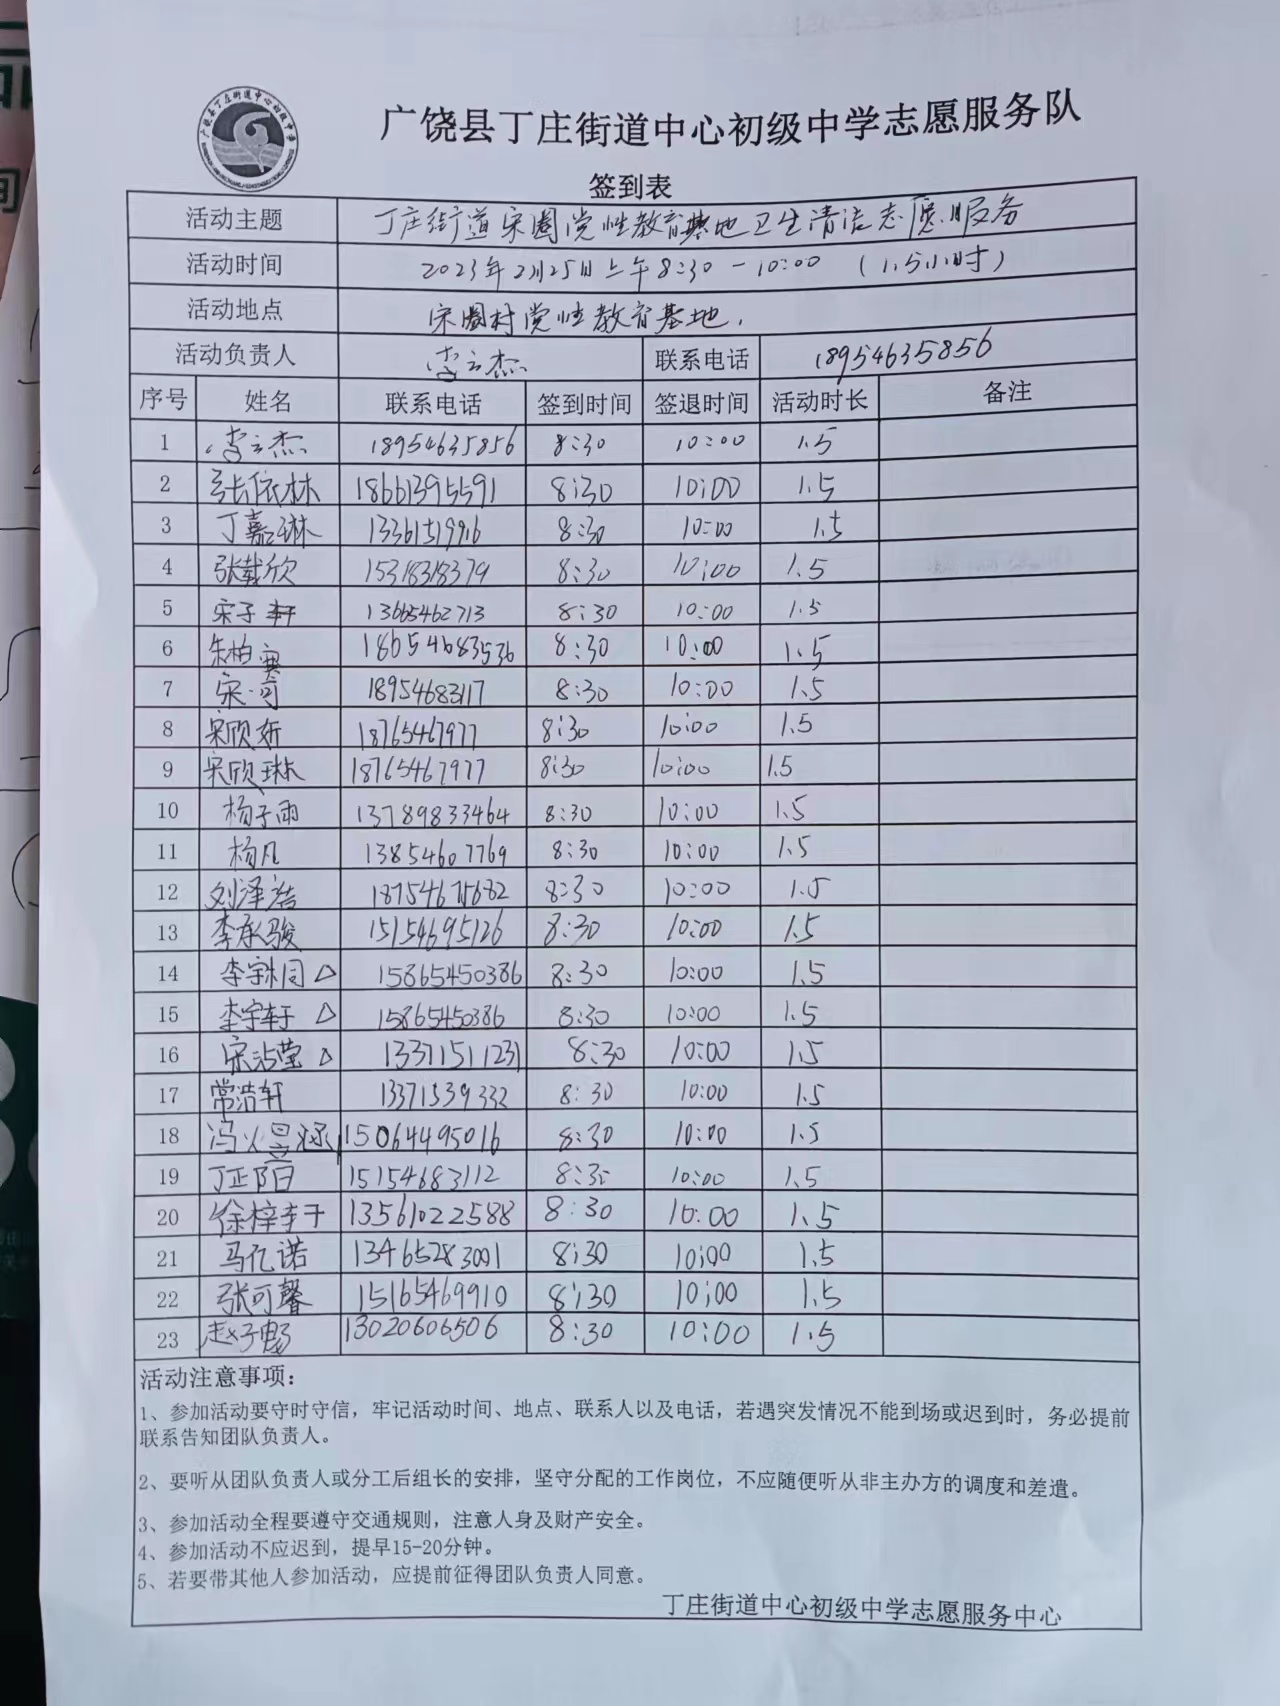 广饶县丁庄街道中心初级中学志愿服务队
签到表
活动主题 丁庄街道宋圈党性教育基地卫生清洁志愿服务
活动时间 2023年2月25日上午8:30-10:00 (1.5小时)
活动地点 宋圈村党性教育基地.
活动负责人 李云杰 联系电话 18954635856
序号 姓名 联系电话 签到时间 签退时间 活动时长 备注
1 李云杰 18954635856 8:30 10:00 1.5
2 张依林 18661395591 8:30 10:00 1.5
3 丁嘉琳 13361519916 8:30 10:00 1.5
4 张載欣 15318318379 8:30 10:00 1.5
5 宋子轩 13665462713 8:30 10:00 1.5
6 朱柏寘 18654683536 8:30 10:00 1.5
7 宋·可 18954683117 8:30 10:00 1.5
8 宋欣妍 18765467977 8:30 10:00 1.5
9 宋欣琳 18765467977 8:30 10:00 1.5
10 杨子雨 13789833464 8:30 10:00 1.5
11 杨凡 13854607769 8:30 10:00 1.5
12 刘泽浩 18754675682 8:30 10:00 1.5
13 李承骏 15154695126 8:30 10:00 1.5
14 李宇桐△ 15865450386 8:30 10:00 1.5
15 李宇轩△ 15865450386 8:30 10:00 1.5
16 宋沾莹△ 13371511231 8:30 10:00 1.5
17 常浩轩 13371539332 8:30 10:00 1.5
18 冯火昱涵 15064495016 8:30 10:00 1.5
19 丁正阳 15154683112 8:30 10:00 1.5
20 徐梓轩 13561022588 8:30 10:00 1.5
21 马亿诺 13465283001 8:30 10:00 1.5
22 张可馨 15165469910 8:30 10:00 1.5
23 赵子畅 13020606506 8:30 10:00 1.5
活动注意事项：
1、参加活动要守时守信，牢记活动时间、地点、联系人以及电话，若遇突发情况不能到场或迟到时，务必提前
联系告知团队负责人。
2、要听从团队负责人或分工后组长的安排，坚守分配的工作岗位，不应随便听从非主办方的调度和差遣。
3、参加活动全程要遵守交通规则，注意人身及财产安全。
4、参加活动不应迟到，提早15-20分钟。
5、若要带其他人参加活动，应提前征得团队负责人同意。
丁庄街道中心初级中学志愿服务中心